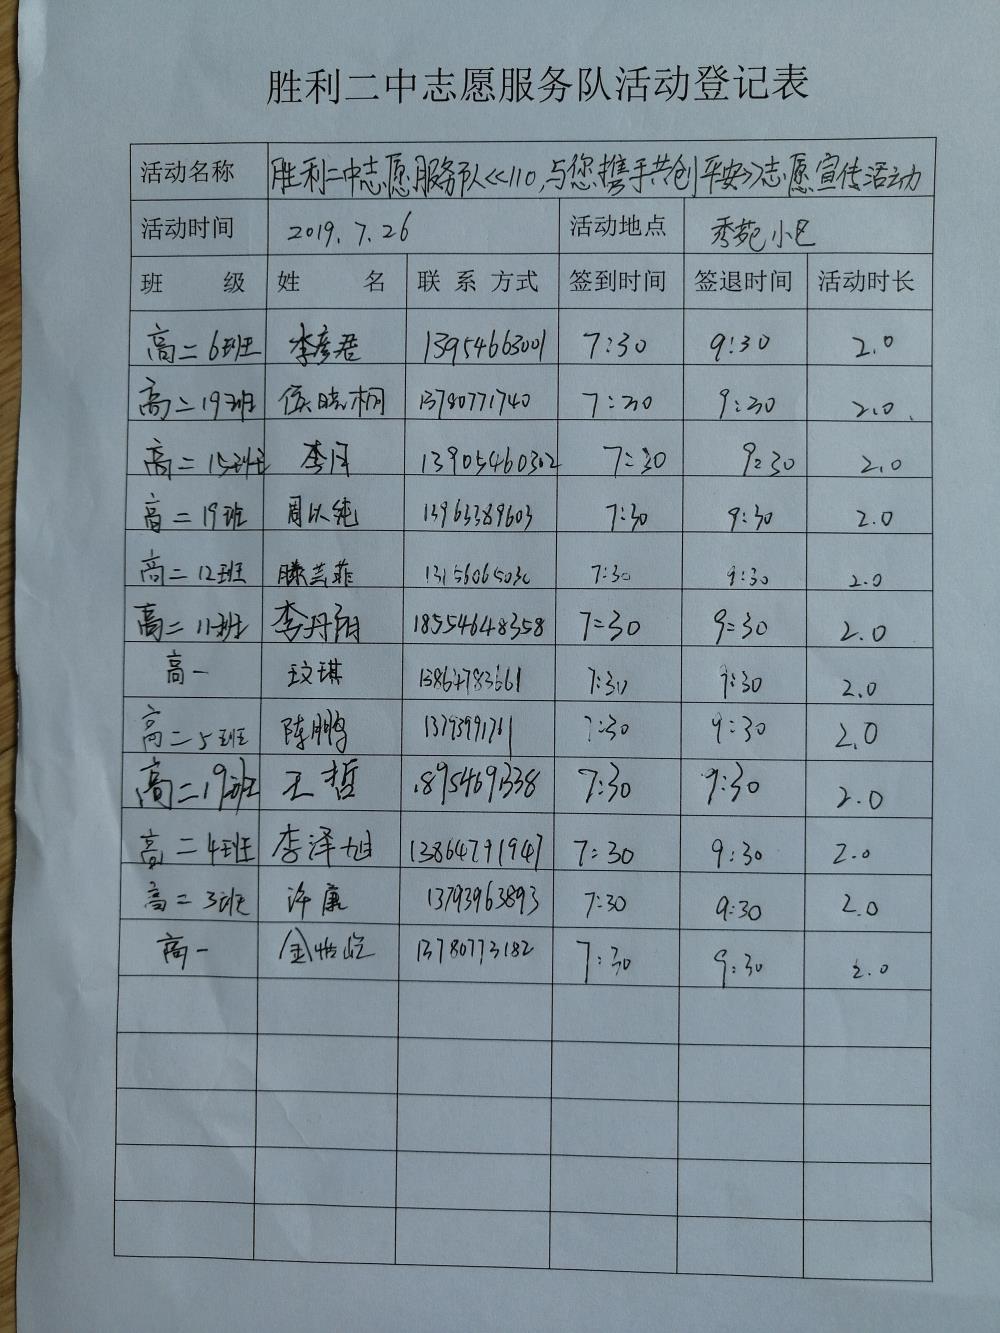 胜利二中志愿服务队活动登记表
活动名称 胜利二中志愿服务队<<110,与您携手共创平安>>志愿宣传活动
活动时间 2019.7.26 活动地点 秀苑小区
班 级 姓 名 联 系 方式 签到时间 签退时间 活动时长
高二6班 李彦君 13954663001 7:30 9:30 2.0
高二19班 侯晓桐 13780771740 7:30 9:30 2.0
高二15班 李月 13905460302 7:30 9:30 2.0
高二19班 周以纯 13963389603 7:30 9:30 2.0
高二12班 滕芸菲 7:30 9:30 2.0
高二11班 李丹阳 18554648358 7:30 9:30 2.0
高一 玟琪 13864783661 7:30 9:30 2.0
高二5班 陈鹏 7:30 9:30 2.0
高二19班 王哲 7:30 9:30 2.0
高二4班 李泽旭 13864791947 7:30 9:30 2.0
高二3班 许康 13793963893 7:30 9:30 2.0
高一 金 13780773182 7:30 9:30 2.0